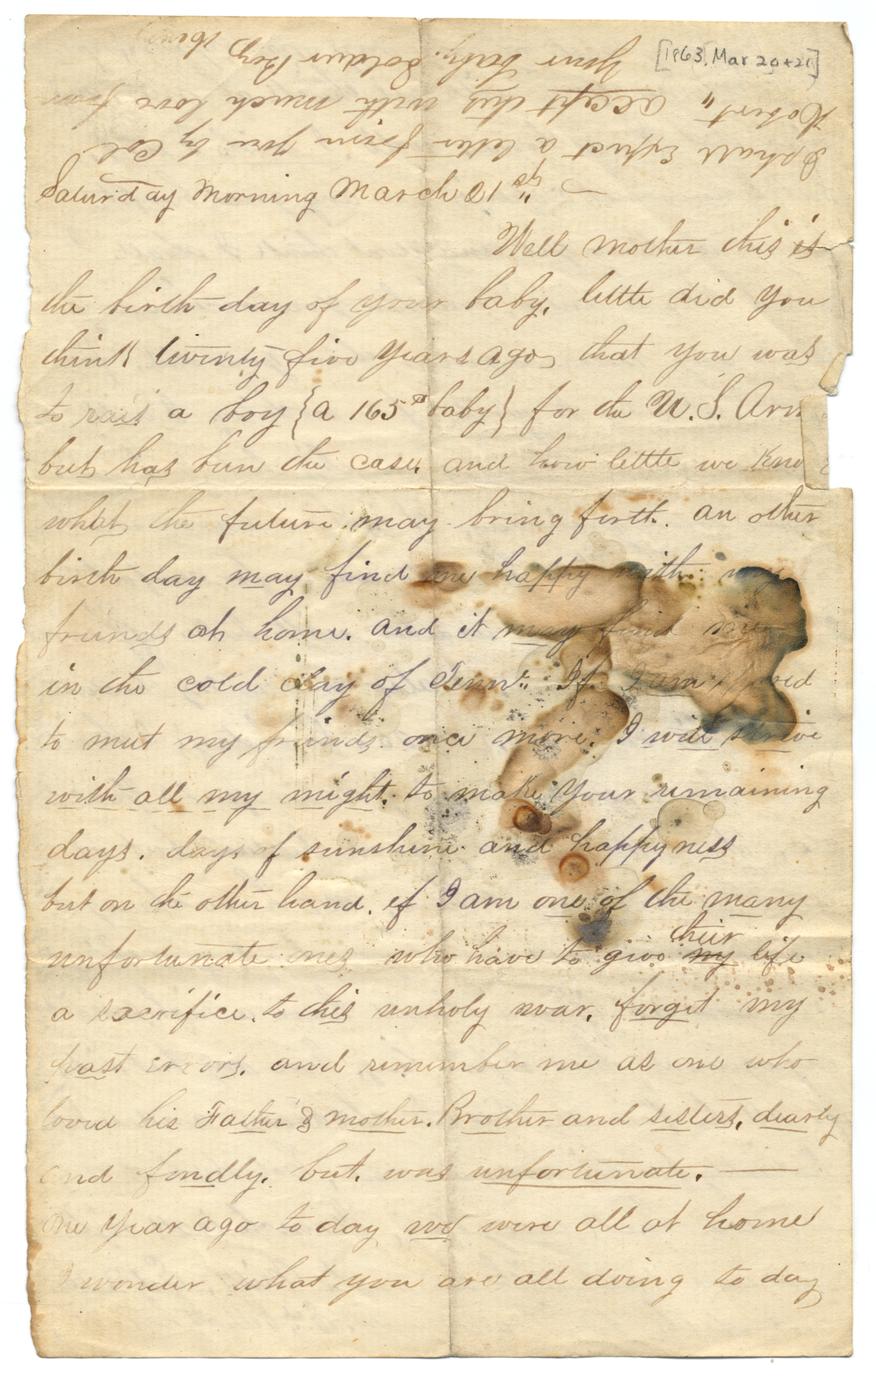 [1863, Mar 20 + 21]
I shall Expect a letter from you by Col
Robert" accept this with much love from
Your Baby. Soldier Boy
Saturday Morning March 21" 63"
Well mother this is
the birth day of your baby. little did you
think twenty five years ago, that you was
to rais a boy {a 165 lb baby} for the U. S. Arm
but has bun the case. and how little we know
what the future may bring forth. an other
birth day may find me happy with my
friends at home. and it may find me
in the cold clay of Tenn. If I am spared
to meet my friends once more. I will strive
with all my might. to make your remaining
days. days of sunshine and happyness
but on the other hand. if I am one of the many
unfortunate ones who have to give my their life
a sacrifice. to this unholy war. forget my
past errors. and remember me as one who
loved his Father & mother. Brother and sisters. dearly
and fondly. but. was unfortunate. —
One year ago to day we were all at home
I wonder what you are all doing to day